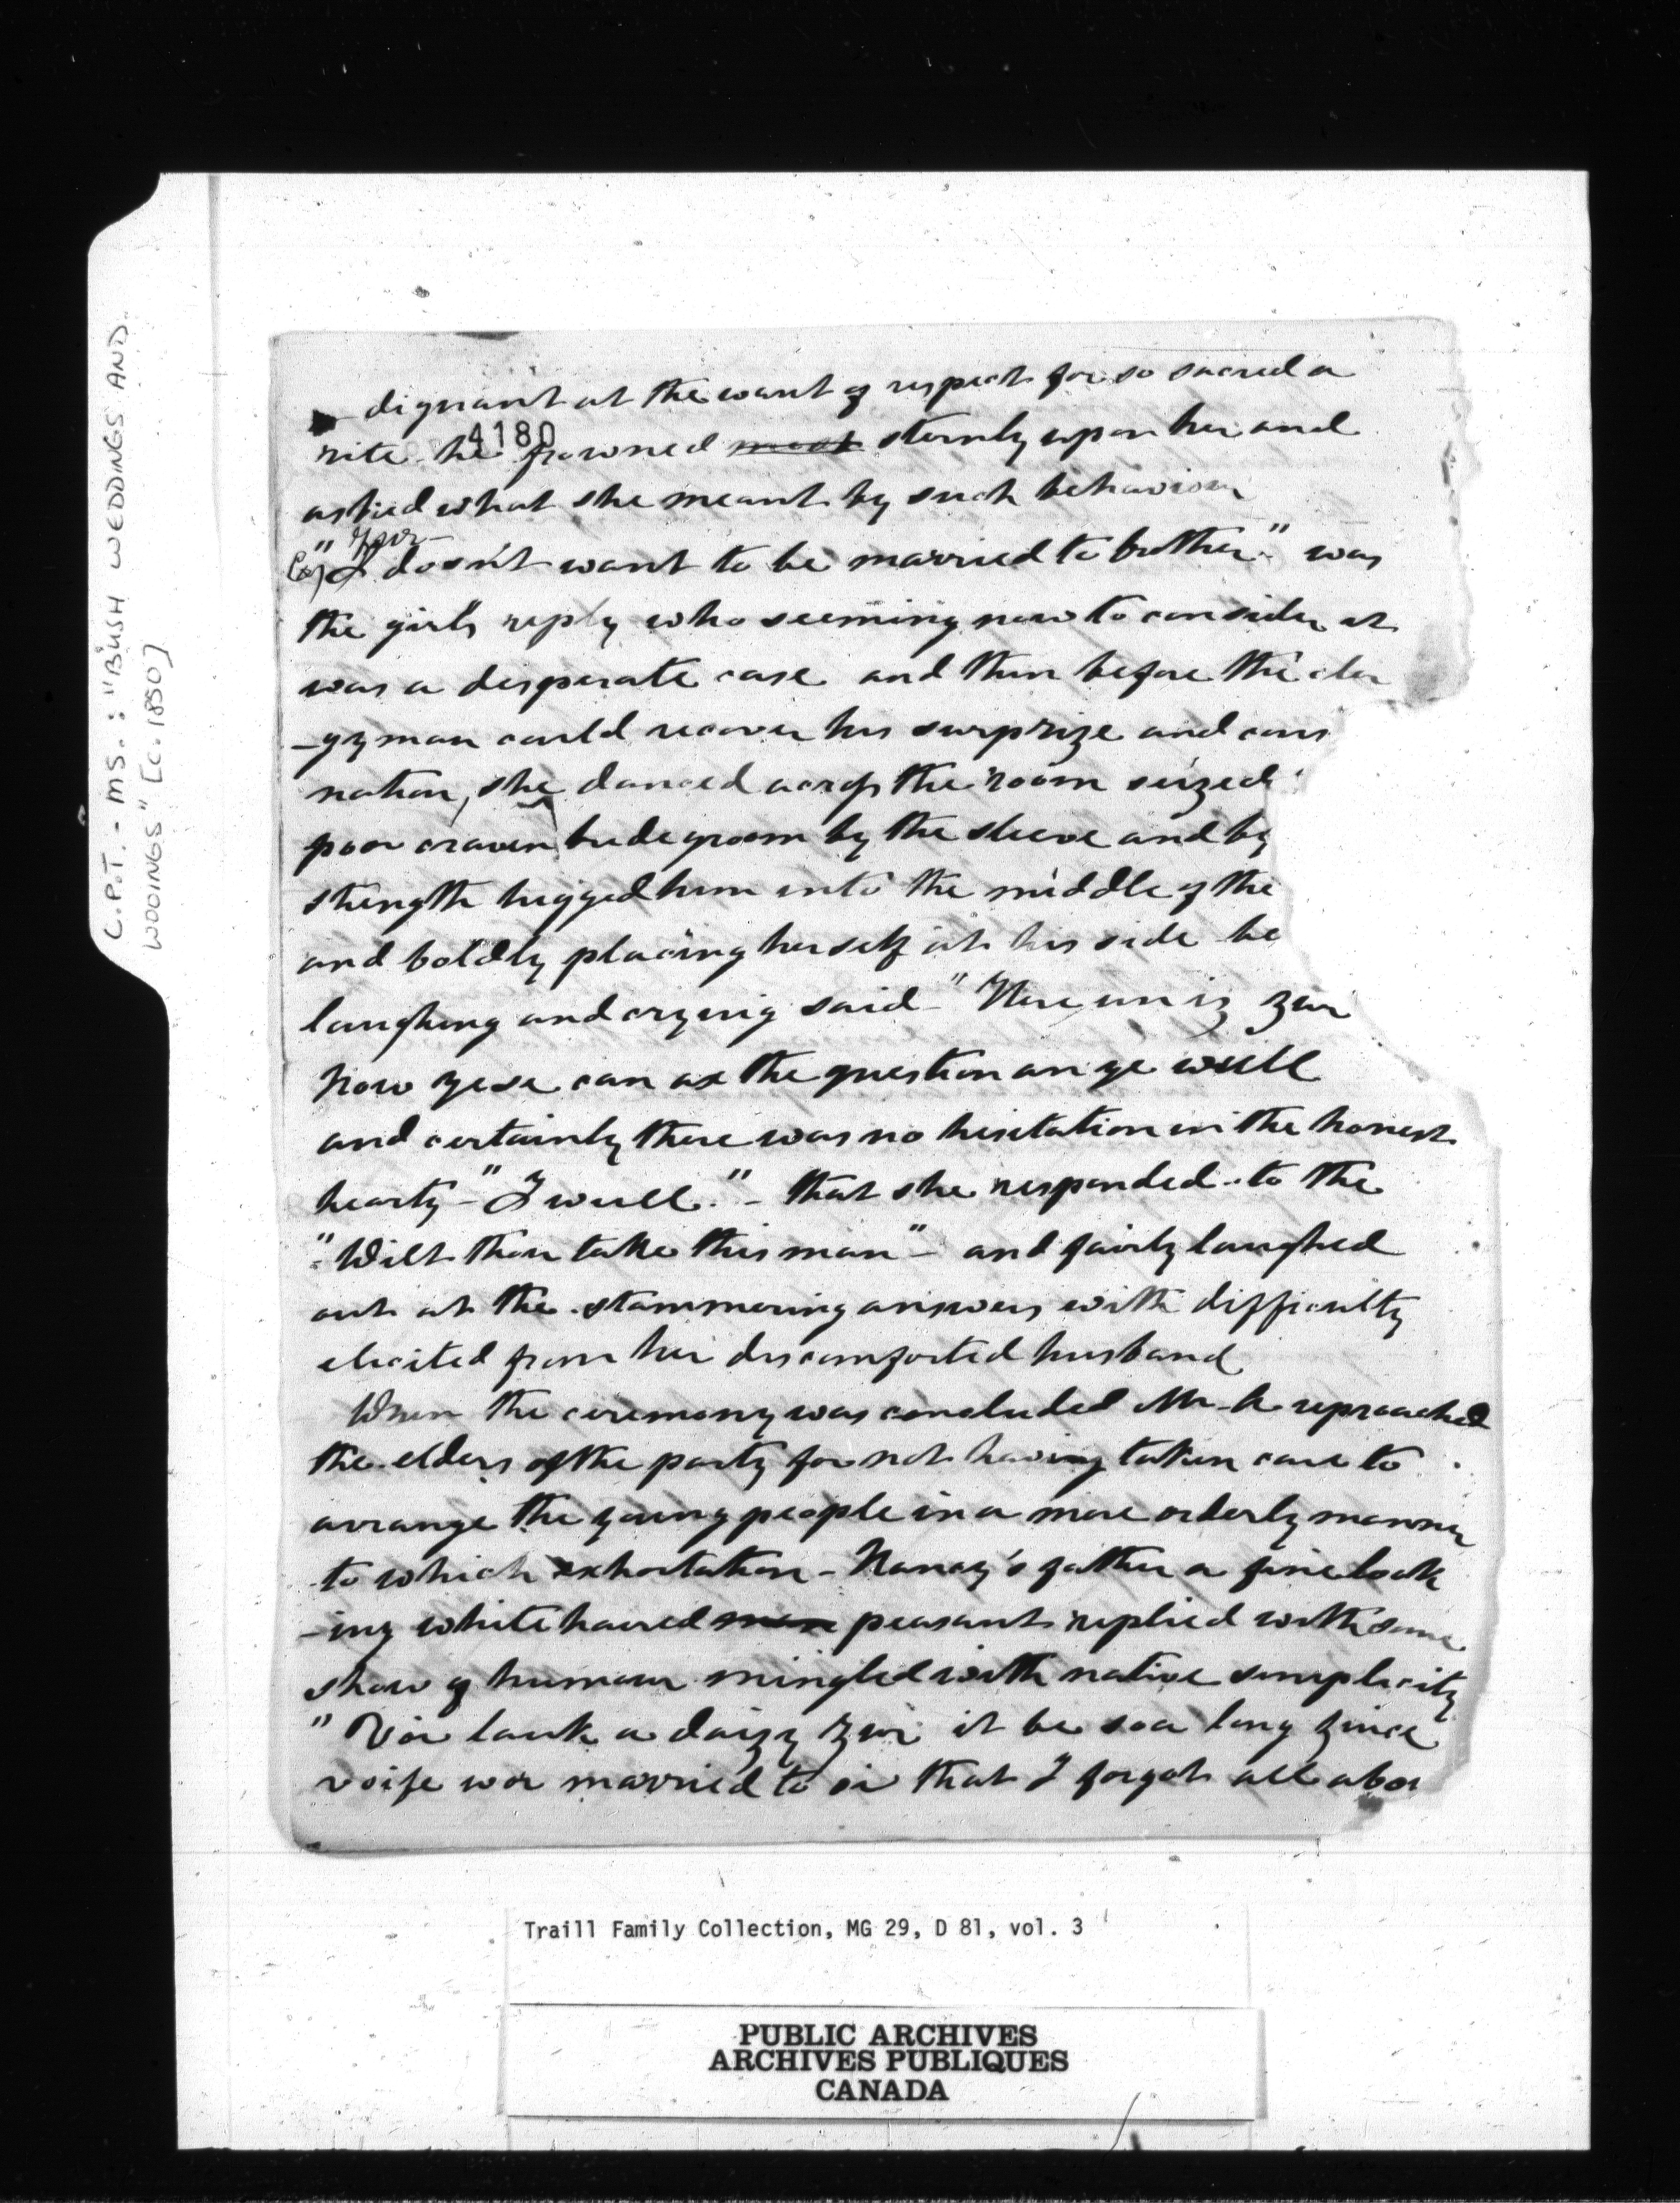 C.P.T. - MS.: "BUSH WEDDINGS AND
WOOINGS" [C. 1850]
- dignant at the want of respect for so sacred a
4180
rite he frowned most sternly upon her and
asked what she meant by such behaviour
"I doesn't want to be married to brother" was
the girl's reply who seeming now to consider it
was a desperate case and then before the cler
-gyman could recover his surprize and cons
nation, she danced across the room seized
poor craven bridegroom by the sleeve and by
strength lugged him into the middle of the
and boldly placing herself at his side be
laughing and crying said - "Here un iz zur
now yese can ax the question an ye wull
and certainly there was no hesitation in the honest
hearty - "I wull." - that she responded to the
"Wilt thou take this man" - and fairly laughed
out at the stammering answers with difficulty
elicited from her discomforted husband
When the ceremony was concluded Mr. reproached
the elders of the party for not having taken care to
arrange the young people in a more orderly manner
to which exhortation - Nancy's father a fine look
-ing white haired man peasant replied with some
show of humour mingled with native simplicity
" Vor lauk a daizy zur it be soa long zince
voife wor married to oi that I forgot all abou
Traill Family Collection, MG 29, D 81, vol. 3
PUBLIC ARCHIVES
ARCHIVES PUBLIQUES
CANADA